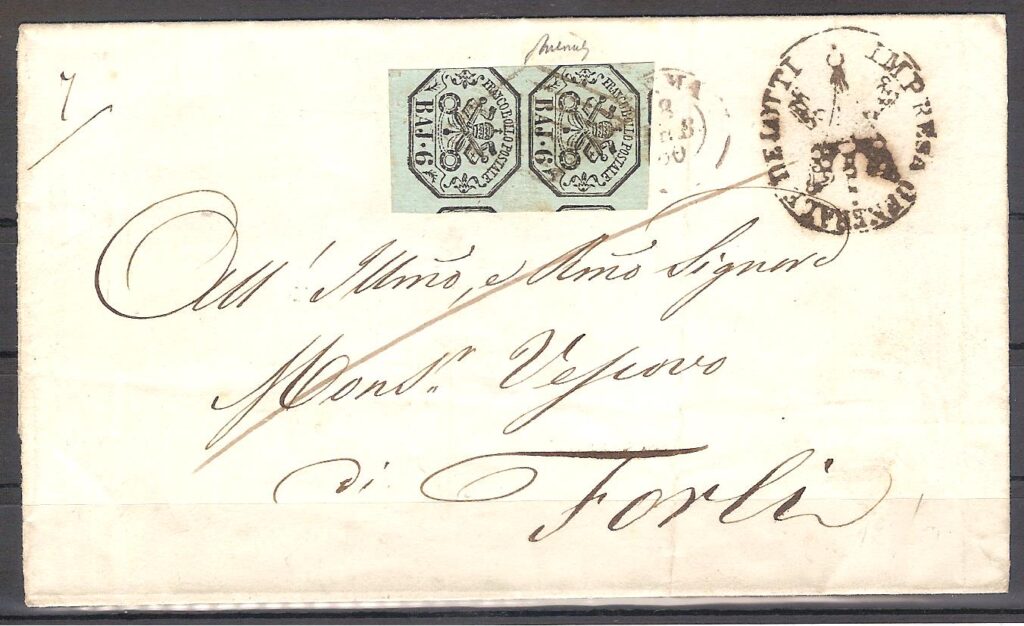 7
FRANCOBOLLO POSTALE BAJ·6
FRANCOBOLLO POSTALE BAJ·6
IMPRESA GENERALE DE LOTTI
All' Illmo, e Rmo Signore
Mons.r Vescovo
di Forlì